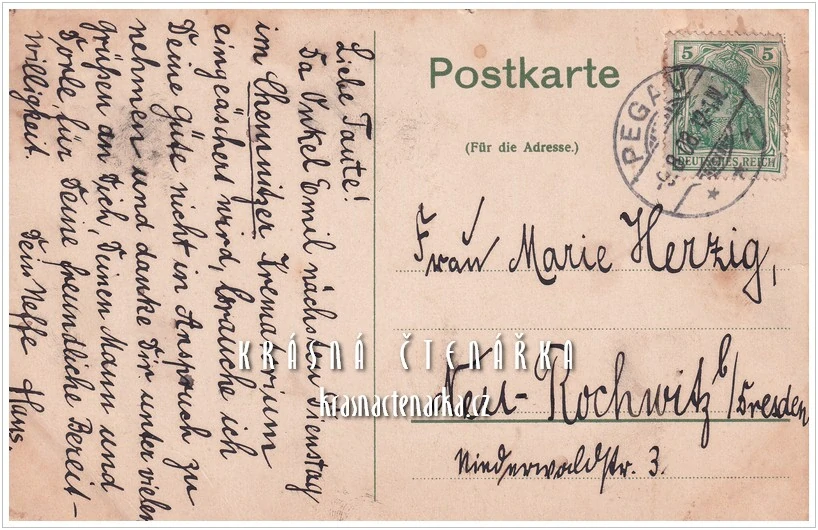 Liebe Tante!
Da Onkel Emil nächsten Dienstag
im Chemnitzer Krematorium
eingeäschert wird, brauche ich
Deine Güte nicht in Anspruch zu
nehmen und danke Dir unter vielen
Grüßen an Dich, Deinen Mann und
für Deine freundliche Bereit-
willigkeit.
Dein Neffe Hans.
Postkarte
(Für die Adresse.)
5 5
DEUTSCHES REICH
PEGAU
8.08.
Frau Marie Herzig,
Neu-Rochwitz b/Dresden
Niederwaldstr. 3.
KRÁSNÁ ČTENÁŘKA
krasnactenarka.cz